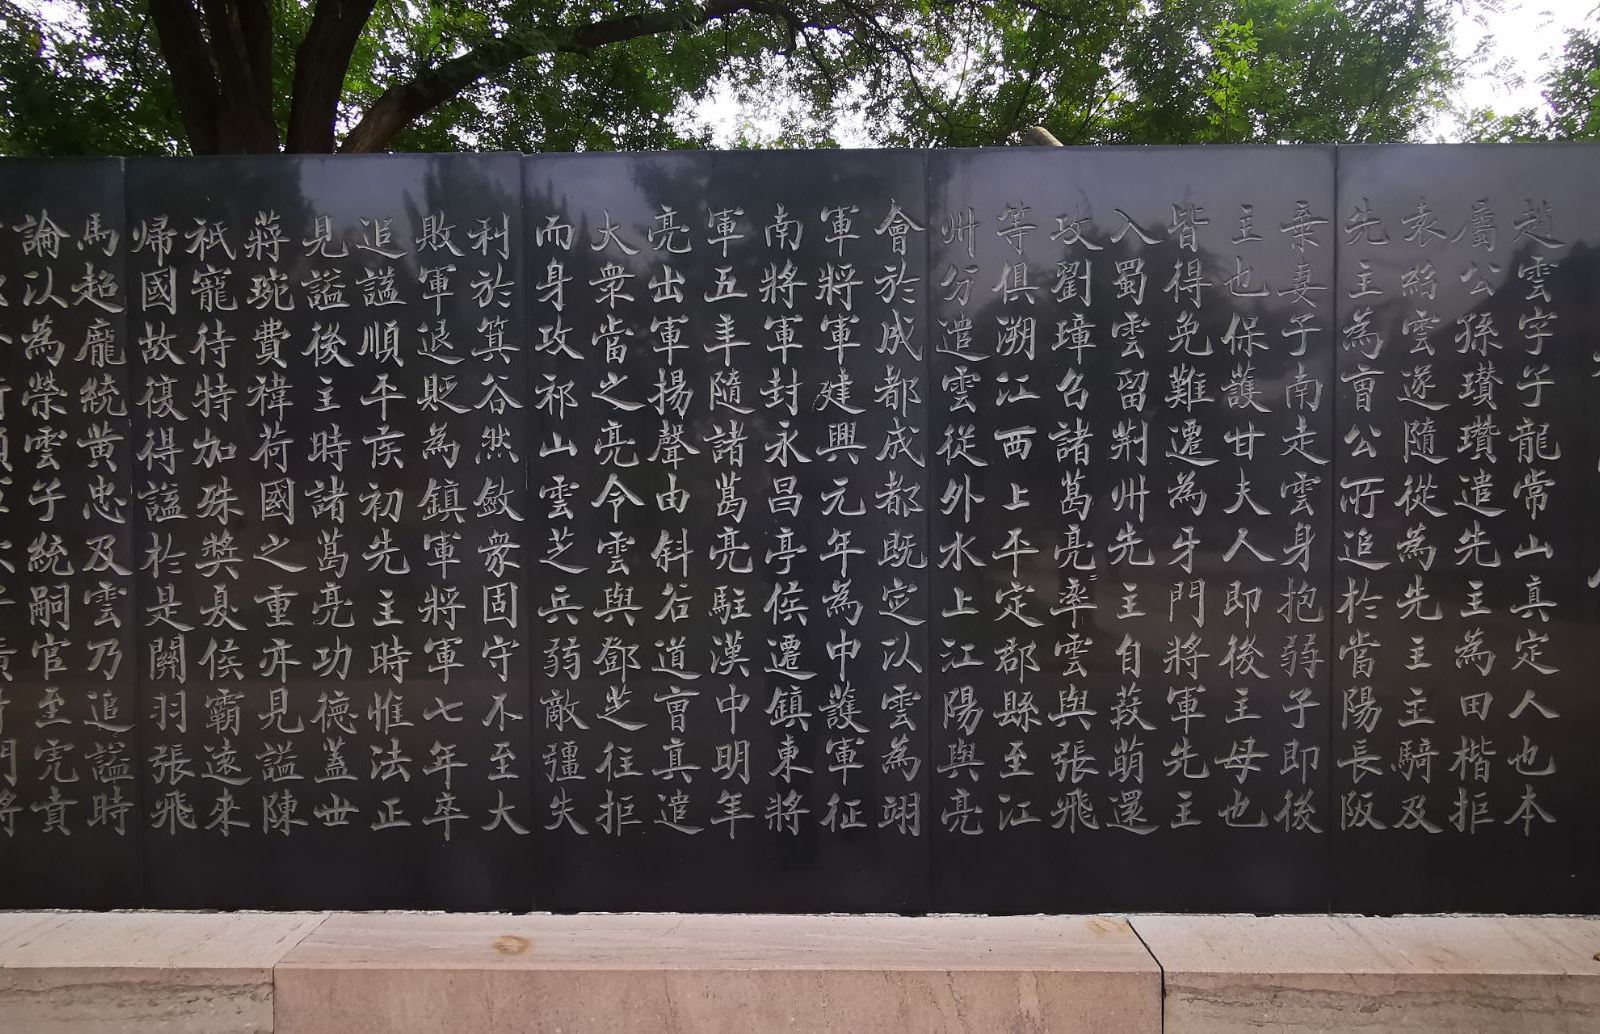 趙雲字子龍常山真定人也本
屬公孫瓚瓚遣先主為田楷拒
袁紹雲遂隨從為先主主騎及
先主為曹公所追於當陽長阪
棄妻子南走雲身抱弱子即後
主也保護甘夫人即後主母也
皆得免難遷為牙門將軍先主
入蜀雲留荆州先主自葭萌還
攻劉璋召諸葛亮率雲與張飛
等俱溯江西上平定郡縣至江
州分遣雲從外水上江陽與亮
會於成都成都既定以雲為翊
軍將軍建興元年為中護軍征
南將軍封永昌亭侯遷鎮東將
軍五年隨諸葛亮駐漢中明年
亮出軍揚聲由斜谷道曹真遣
大衆當之亮令雲與鄧芝往拒
而身攻祁山雲芝兵弱敵彊失
利於箕谷然斂衆固守不至大
敗軍退貶為鎮軍將軍七年卒
追謚順平侯初先主時惟法正
見謚後主時諸葛亮功德蓋世
蔣琬費禕荷國之重亦見謚陳
祗寵待特加殊獎夏侯霸遠來
歸國故復得謚於是關羽張飛
馬超龐統黄忠及雲乃追謚時
論以為榮雲子統嗣官至虎賁